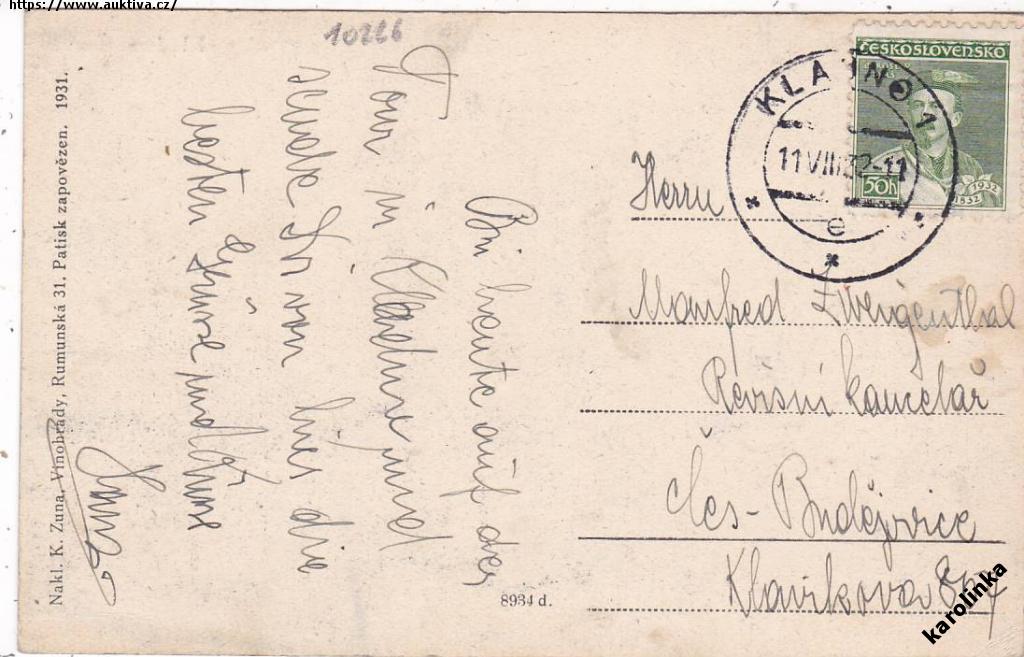 https://www.auktiva.cz/
10226
Nakl. K. Zuna, Vinohrady, Rumunská 31. Patisk zapovězen. 1931.
Bin heute auf der
Tour in Kladno und
sende Dir von hier die
besten Grüsse und Küsse
8934 d.
ČESKOSLOVENSKO
50h
1932
1832
KLADNO 1
11 VIII 32-11
e
Herrn
Manfred Zweigenthal
Revisní kancelář
Čes- Budějovice
karolinka